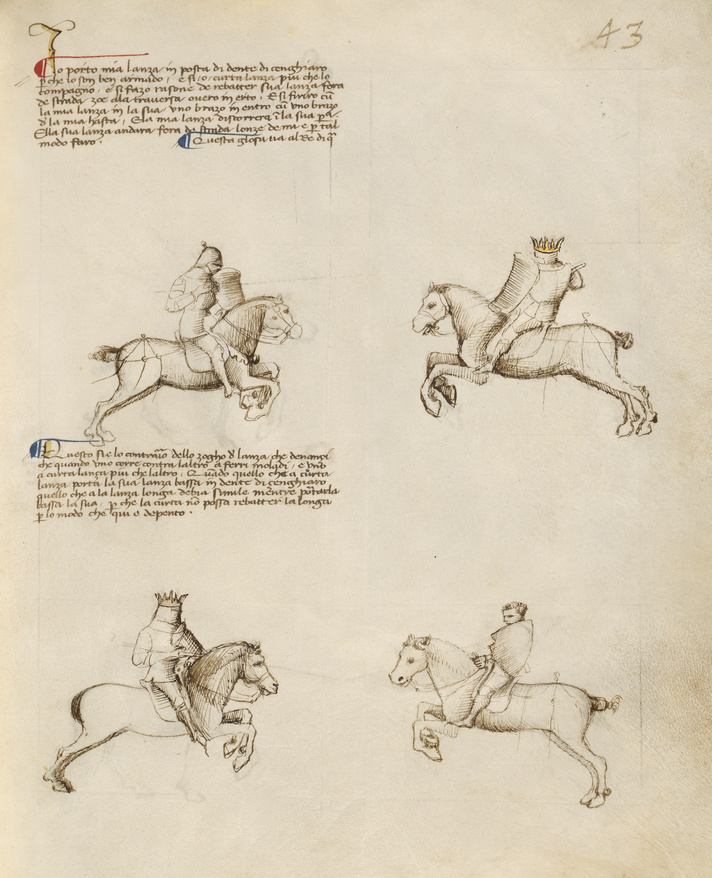 43
Io porto mia lanza in posta di dente di cenghiaro
p che lo son ben armado / e si / o / curta lanza piu che lo
compagno / e si fazo rasone de rebatter sua lanza fora
de strada / zoe ala traversa / overo in erto · E si firiro cu
la mia lanza in la sua / uno brazo in entro cu uno brazo
d la mia hasta / E la mia lanza discorrera i la sua
Ella sua lanza andara fora de strada lonze de mi e p tal
modo faro ·
Questa glosa va al Re di q
Questo si e lo contrario dello zogho d lanza che denanzi
che quando uno corre contra laltro a ferri moladi / e uno
a curta lanza piu che laltro / Quado quello che a curta
lanza porta la sua lanza bassa in dente di cenghiaro
quello che a la lanza longa debia simile mentre portarla
bassa la sua / p che la curta no possa rebatter la longa
p lo modo che qui e depento ·